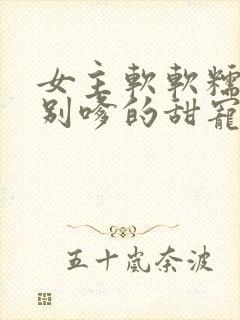 女主軟軟糯
別嗲的甜寵
五十嵐奈波